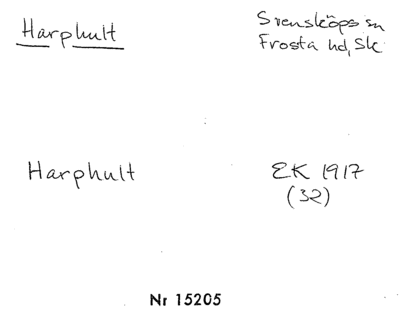 Harphult
Svensköps sn
Frosta hd, Sk.
Harphult
EK 1917
(32)
Nr 15205